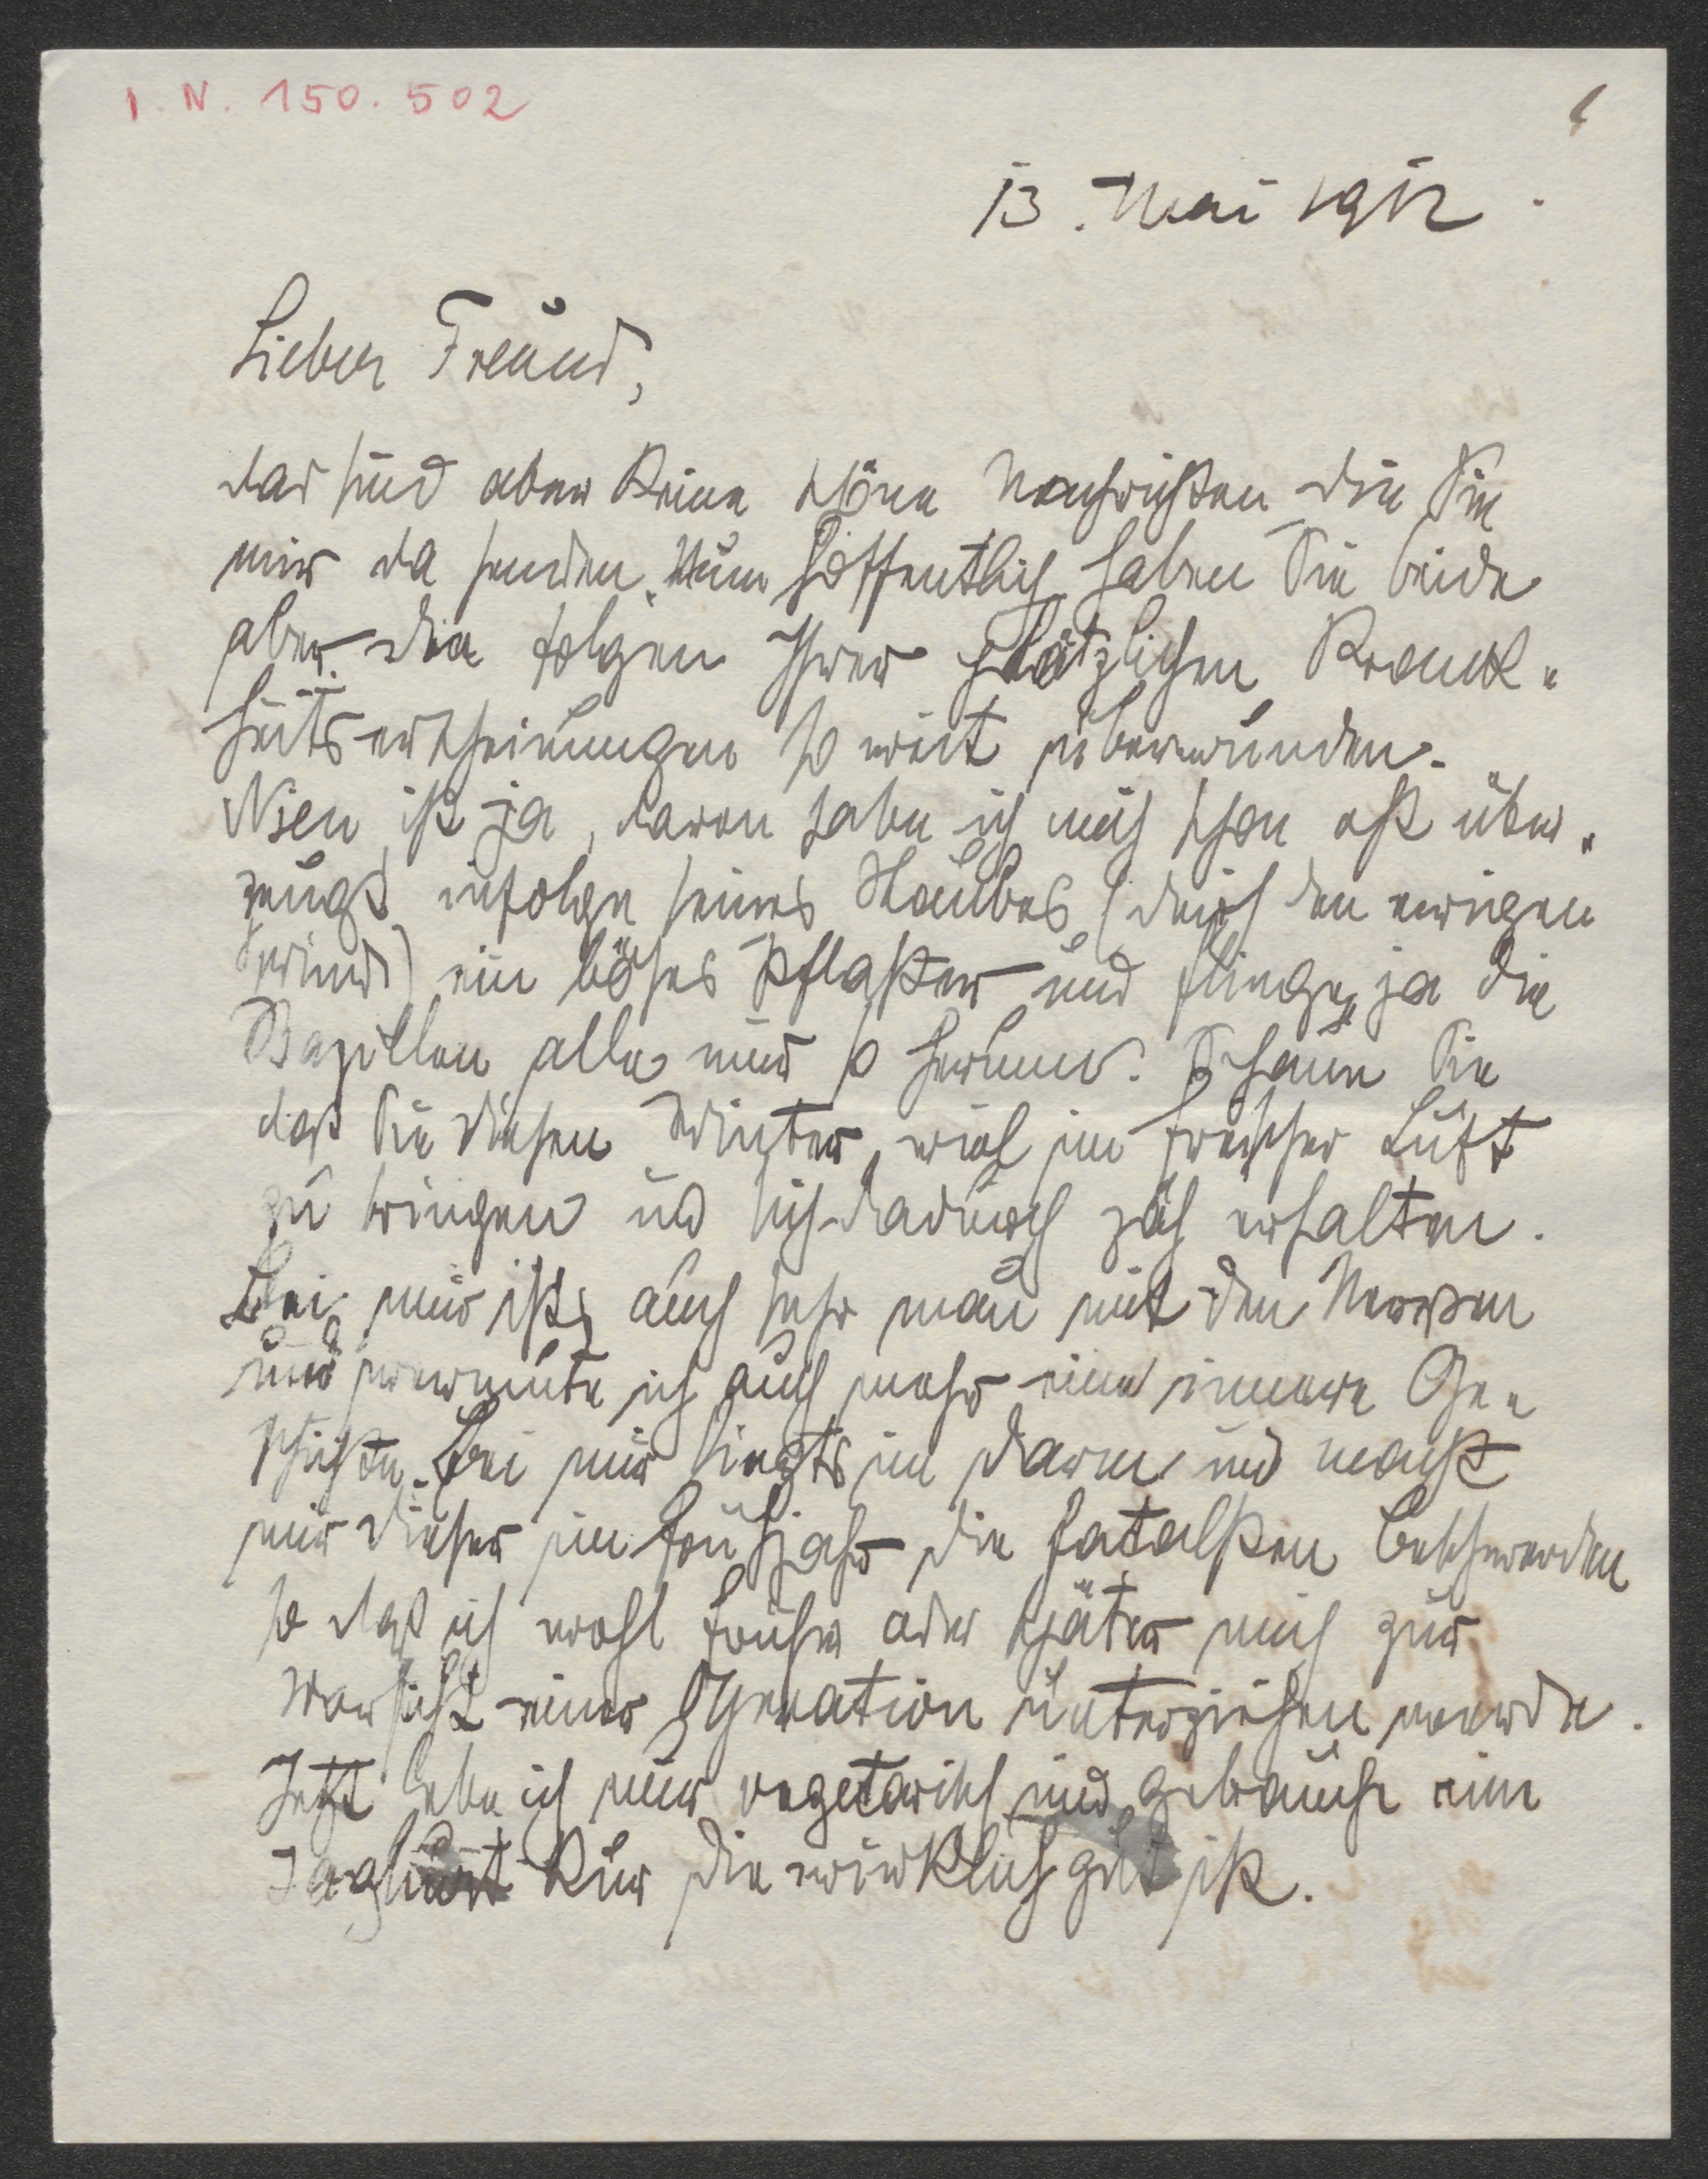 I. N. 150.502
13. Mai 1912.
Lieber Freund,
das sind aber keine schöne Nachrichten die Sie
mir da senden. Nun hoffentlich haben Sie beide
aber die folgen Ihrer plötzlichen Krank-
heitserscheinungen so weit überwunden.
Wien ist ja, davon habe ich mich schon oft über-
zeugt infolge seines Staubes (durch den ewigen
Wind) ein böses Pflaster und fliegen ja die
Bazillen alle nur so herum. Schaun Sie
daß Sie diesen Winter viel in frischer Luft
zu bringen und sich dadurch zäh erhalten.
Bei mir ists auch sehr mau mit den Nerven
und vermute ich auch mehr eine innere Ge-
schichte. Bei mir liegts im Darm und macht
mir dieser im Frühjahr die fatalsten Beschwerden
so daß ich wohl früher oder später mich zur
Vorsicht einer Operation unterziehen werde.
Jetzt lebe ich nur vegetarisch und gebrauche eine
Joghurt Kur die wirklich gut ist.